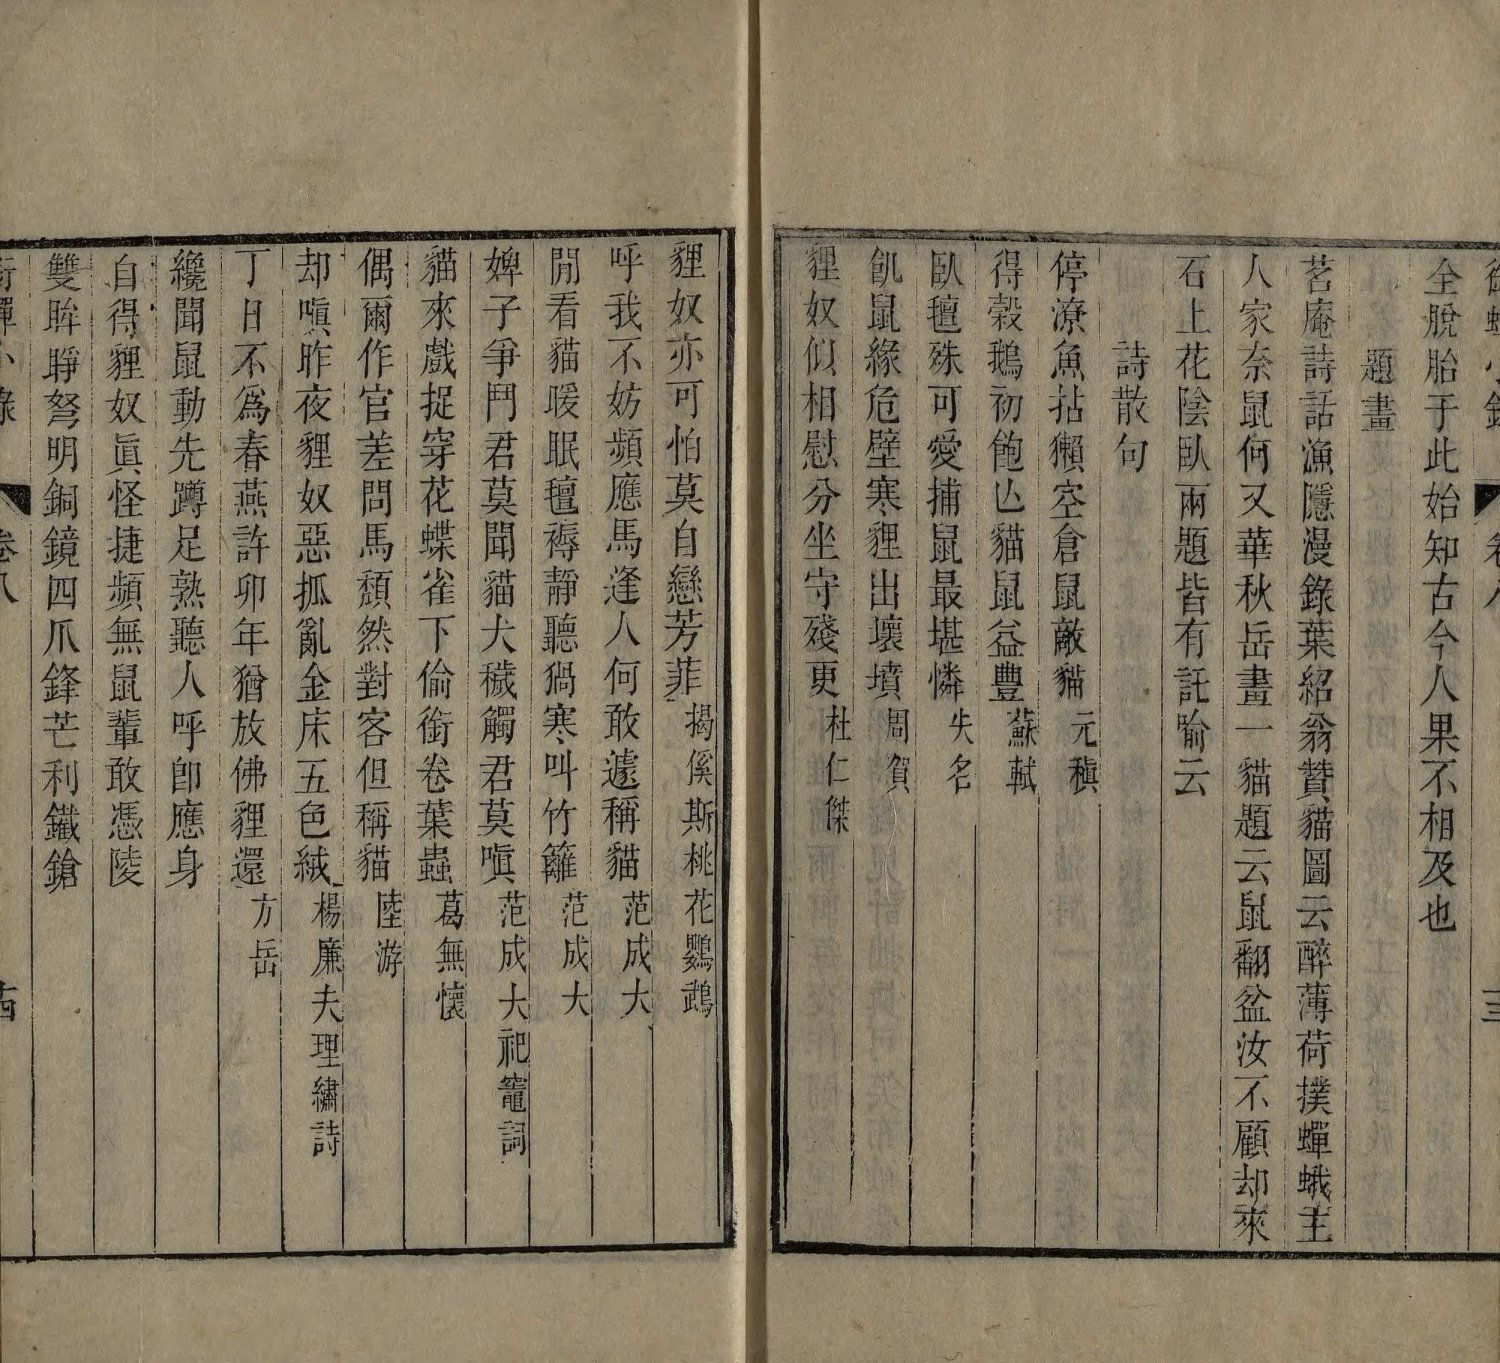 銜蟬小錄 卷八 十三
全脫胎于此始知古今人果不相及也
題畫
茗庵詩話漁隱漫錄葉紹翁贊貓圖云醉薄荷撲蟬蛾主
人家奈鼠何又華秋岳畫一貓題云鼠翻盆汝不顧却來
石上花陰臥兩題皆有託喻云
詩散句
停潦魚拈獺空倉鼠敵貓 元稹
得穀鵝初飽亾貓鼠益豐 蘇軾
臥氊殊可愛捕鼠最堪憐 失名
飢鼠緣危壁寒貍出壞墳 周賀
貍奴似相慰分坐守殘更 杜仁傑
貍奴亦可怕莫自戀芳菲 揭傒斯桃花鸚鵡
呼我不妨頻應馬逢人何敢遽稱貓 范成大
閒看貓暖眠氊褥靜聽猧寒叫竹籬 范成大
婢子爭鬥君莫聞貓犬穢觸君莫嗔 范成大祀竈詞
貓來戲捉穿花蝶雀下偷銜卷葉蟲 葛無懷
偶爾作官差問馬頹然對客但稱貓 陸游
却嗔昨夜貍奴惡抓亂金床五色絨 楊廉夫理繡詩
丁日不爲春燕許卯年猶放佛貍還 方岳
纔聞鼠動先蹲足熟聽人呼卽應身
自得貍奴眞怪捷頻無鼠輩敢憑陵
雙眸睜弩明銅鏡四爪鋒芒利鐵鎗
銜蟬小錄 卷八 十四